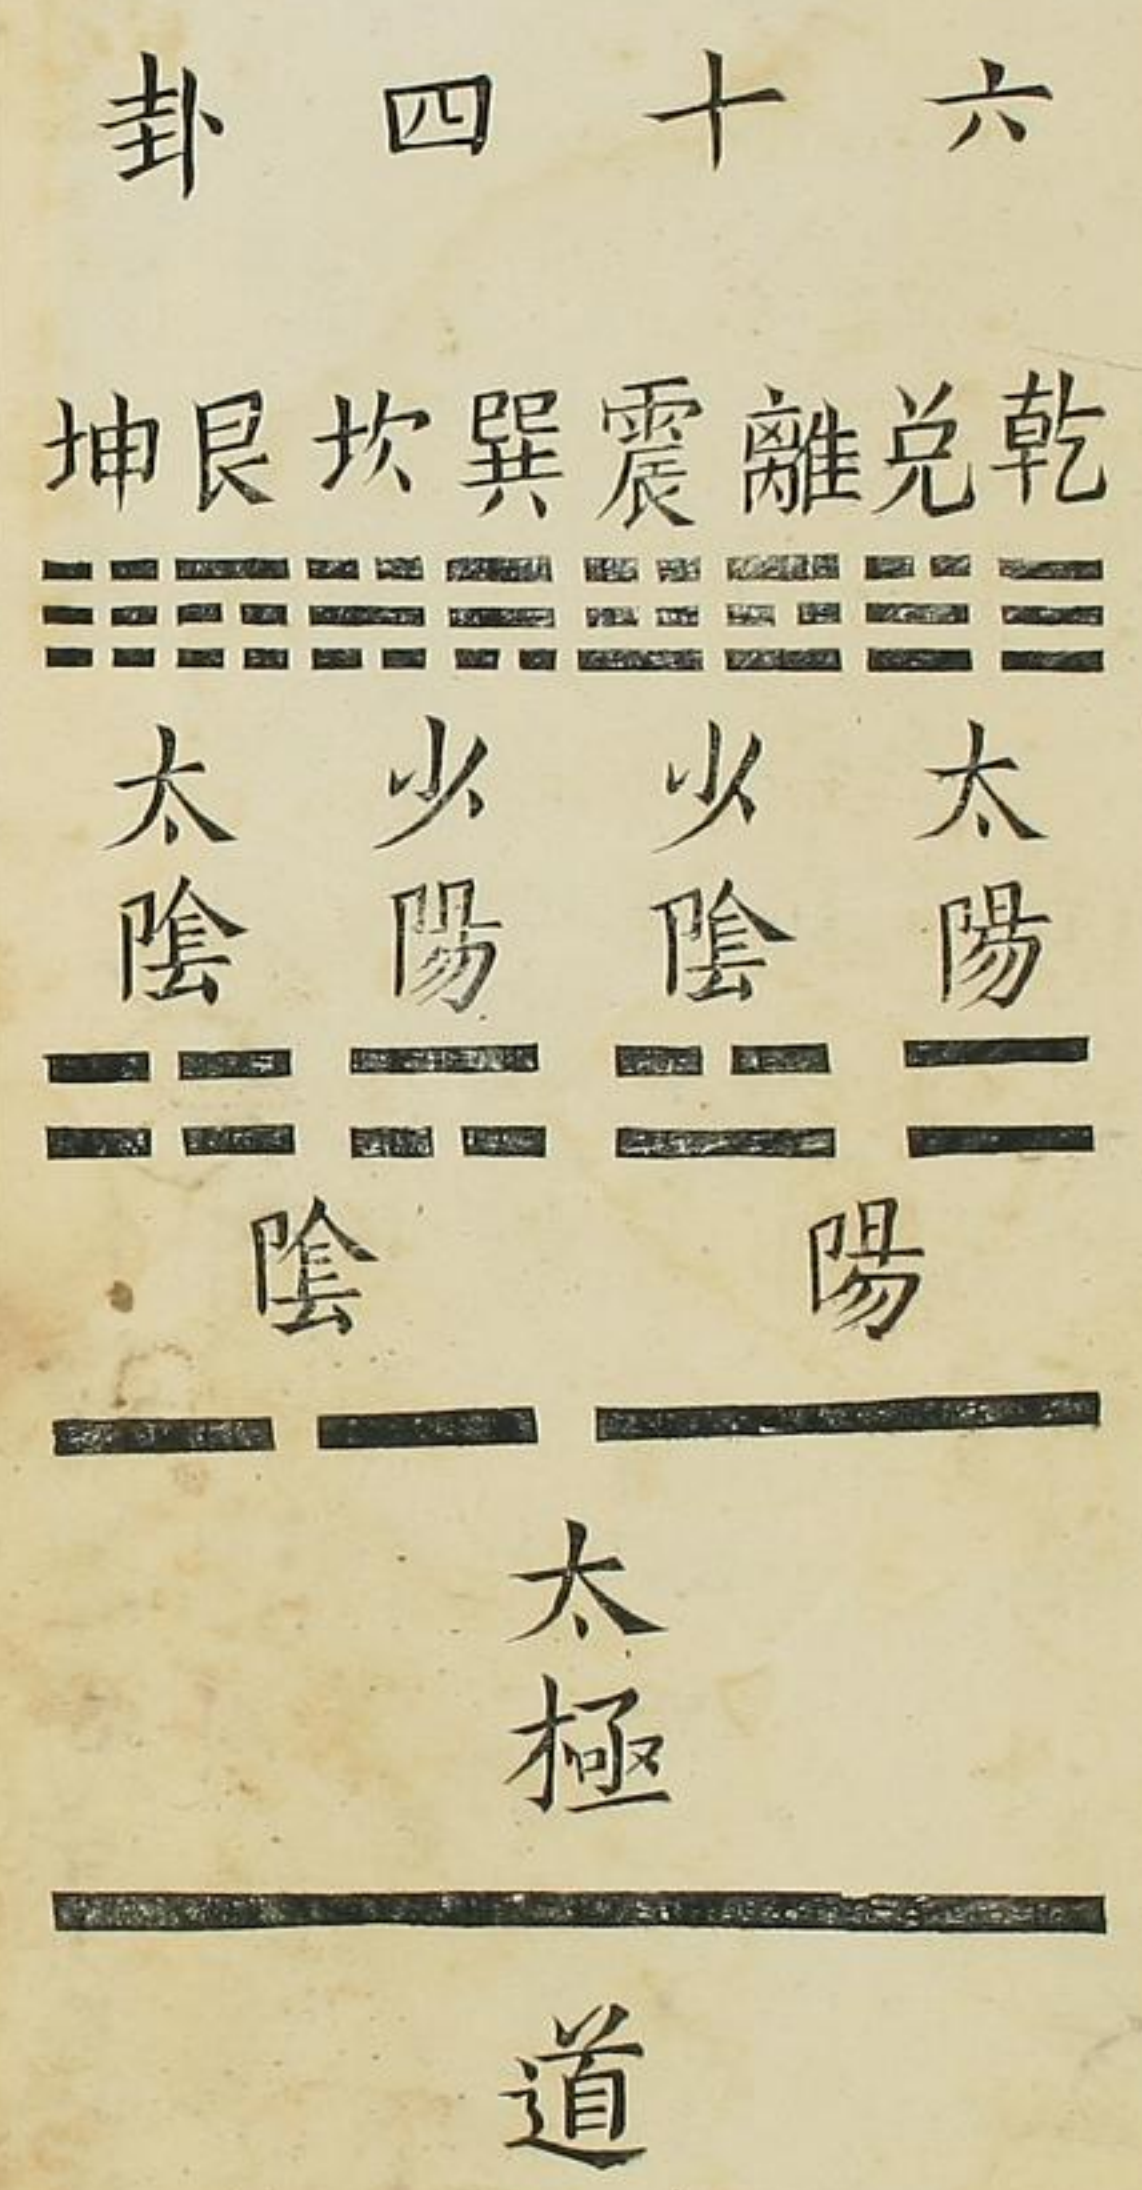 六十四卦
乾兌離震巽坎艮坤
太陽 少陰 少陽 太陰
陽 陰
太極
道